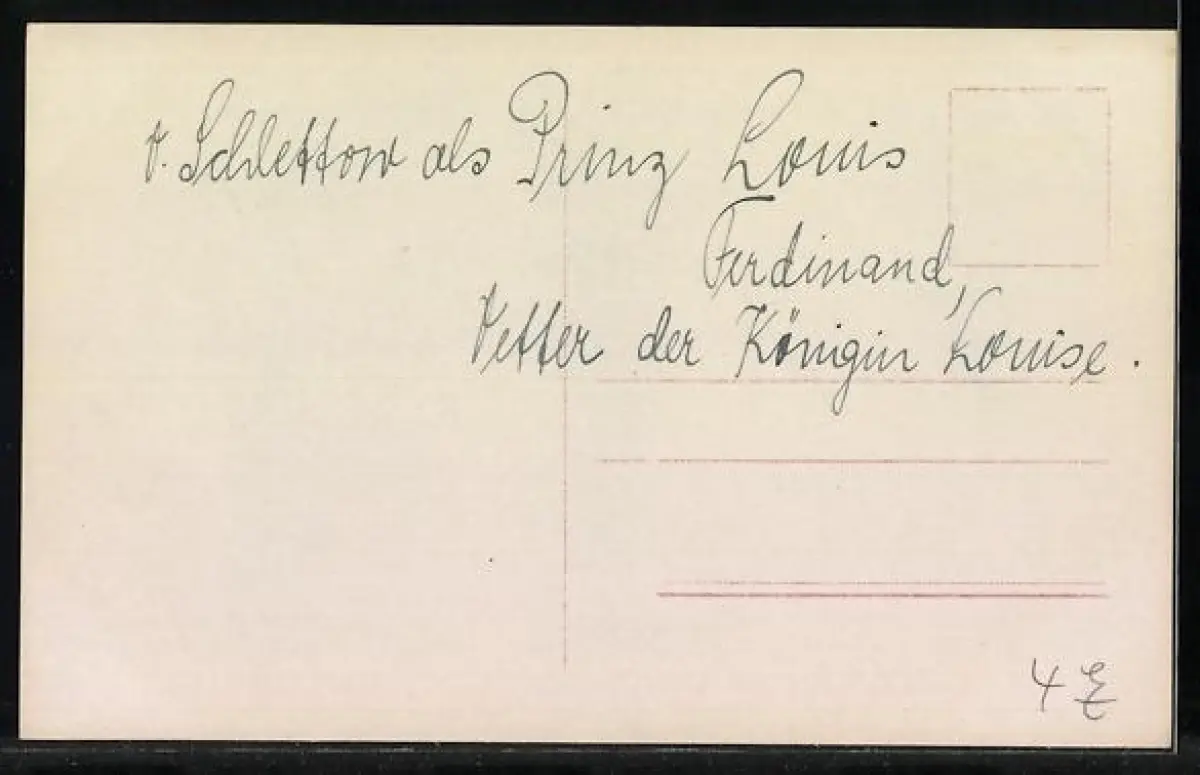 v. Schlettow als Prinz Louis
Ferdinand,
Vetter der Königin Louise.
4